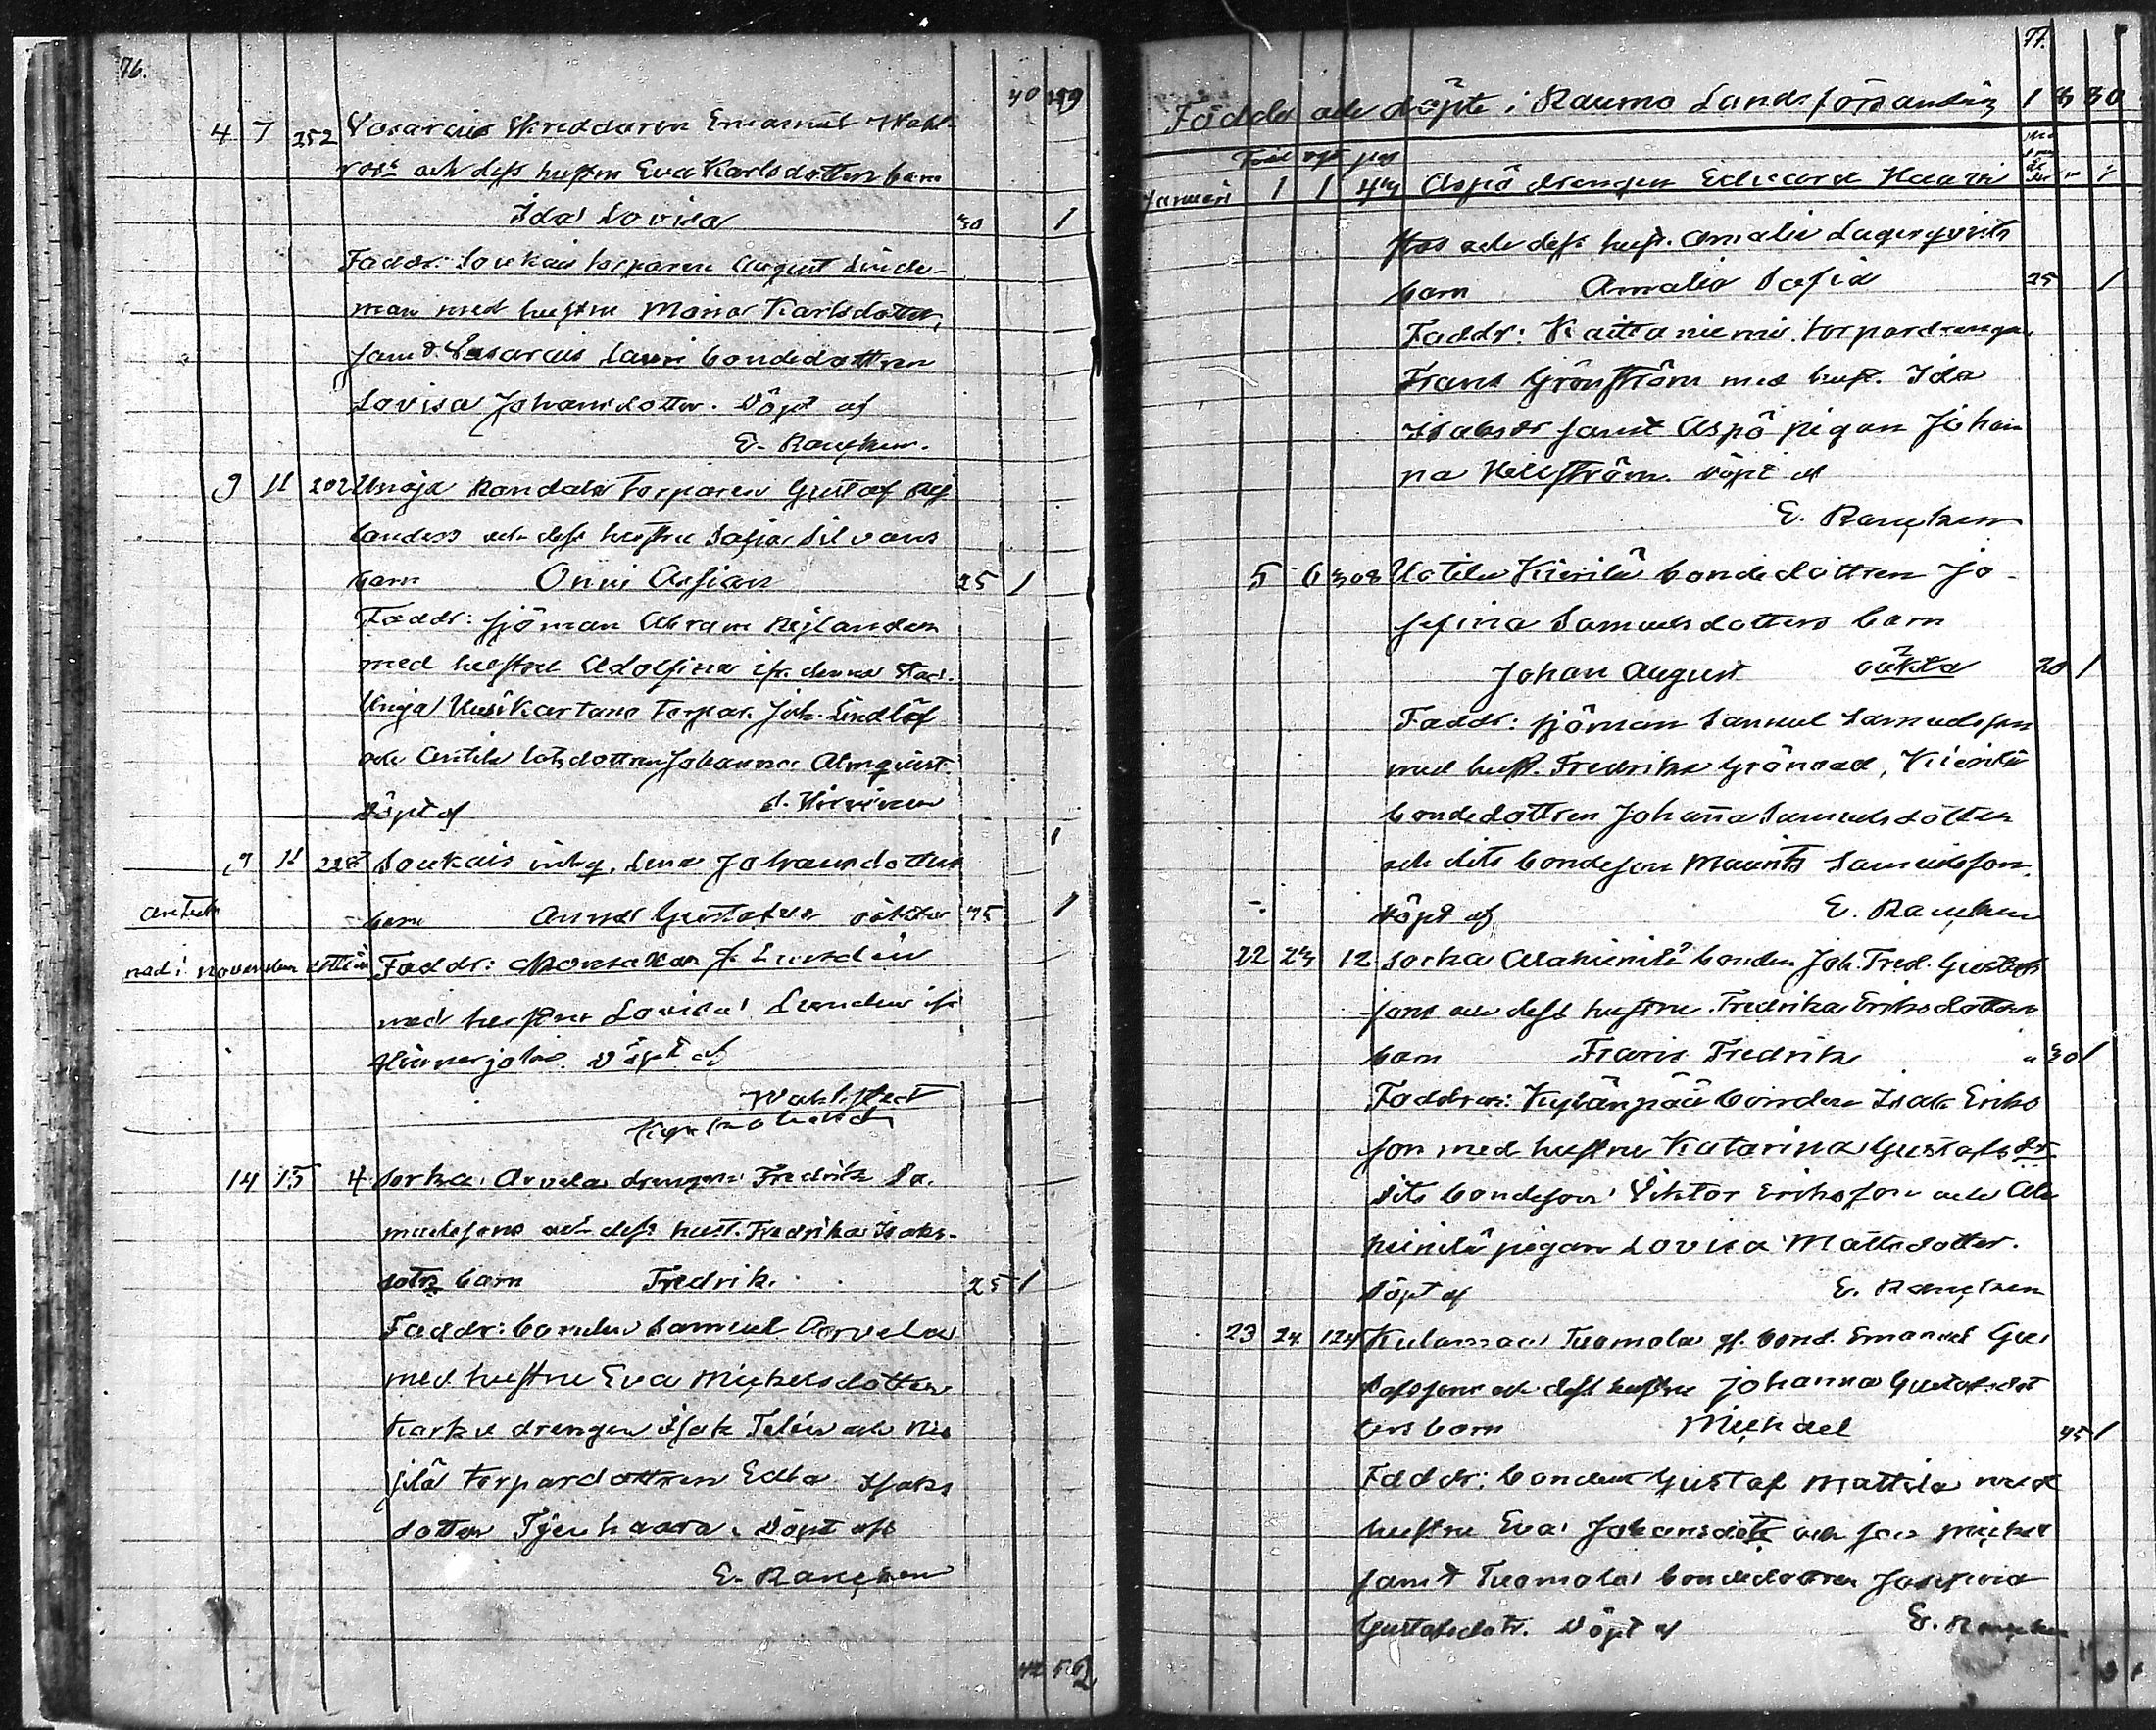 76.
40 49
4 7 252 Vasarais skreddaren Emanuel Wahl-
roos och dess hustru Eva Karlsdotters barn
Ida Lovisa 30 1
Faddr: Soukais torparen August Linde-
man med hustru Maria Karlsdotter,
samt Vasarais Lauri bondedottren
Lovisa Johansdotter. Döpt af
E. Rancken.
9 11 202 Unaja Randala torparen Gustaf Nj
landers och dess hustru Sofia Silvans
barn Onni Assian 25 1
Faddr: sjöman Abram Nylander
med hustru Adolfina ifr. denna stad.
Unja Uusikartano torpar. Joh. Lindlöf
och Anttila dottren Johanna Almqvist.
Döpt af
1
9 11 228 Soukais inhy. Lena Johansdotters
barn Anna Gustafva oäkta 45 1
anteck
nad i november
Faddr:
med hustru Lovisa
Hinnerjoki. Döpt af
Wahlstedt
14 15 4 Sorka Arvela drengen Fredrik Sa-
muelsons och dess hust. Fredrika Isaks-
dotr barn Fredrik. 25 1
Faddr: bonden Samuel Arvela
med hustru Eva Michelsdotter
drengen Isak och
torpardottren Edla Isaks
dotter Tjenhaara. Döpt af
E. Rancken
42 52
77.
Födda och döpte i Raumo Landsförsamling 1880
Januari 1 1 Aspö drengen Edvard Haari
stos och dess hust. Amalia Lagerqvists
barn Amalia Sofia 25 1
Faddr: Kaittaniemi torpardrengen
Frans Grönström med hust. Ida
Isaksdr samt Aspö pigan Johan
na Hellström. Döpt af
E. Rancken
5 6 308 Uotila Kierilä bondedottren Jo-
sefina Samuelsdotters barn
Johan August oäkta 20 1
Faddr: sjöman Samuel Samuelsson
med hust. Fredrika Grönroos, Kierilä
bondedottren Johanna Samuelsdotter
och dito bondeson Maurits Samuelsson.
Döpt af E. Rancken
22 24 12 Sorka Alakierilä bonden Joh. Fred. Gustafs
sons och dess hustru Fredrika Eriksdotters
barn Frans Fredrik " 30 1
Faddrar: Kylänpää bonden Isak Eriks
son med hustru Katarina Gustafsdr
dito bondeson Viktor Eriksson och Ala
kierilä pigan Lovisa Mattsdotter.
Döpt af E. Rancken
23 24 124 Kulamaa Tuomola gf. bond. Emanuel Gus
tafssons och dess hustru Johanna Gustafsdot
ters barn Michael 45 1
Faddr: bonden Gustaf Mattila med
hustru Eva Johansdotr och son Mickel
samt Tuomola bondedottren Josefina
Gustafsdotr. Döpt af E. Rancken